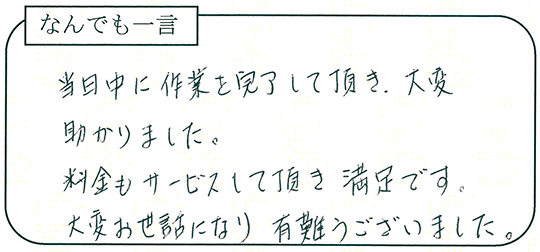 なんでも一言
当日中に作業を完了して頂き、大変
助かりました。
料金もサービスして頂き満足です。
大変お世話になり有難うございました。